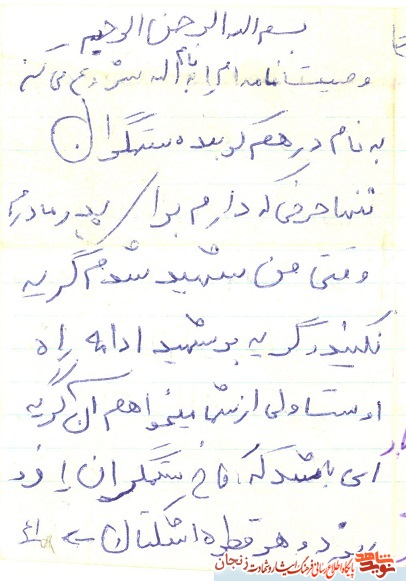 بسم الله الرحمن الرحیم
وصیتنامه ام را به نام الله شروع می کنم
به نام درهم کوبنده ستمگران
تنها حرفی که دارم برای پدر مادرم
وقتی من شهید شدم گریه
نکنید گریه بر شهید ادامه راه
اوست ولی از شما میخواهم آن گریه
ای باشد که کاخ ستمگران را فرو
ریزد و هر قطره اشکتان
نوید شاهد
پایگاه اطلاع رسانی فرهنگ ایثار و شهادت زنجان